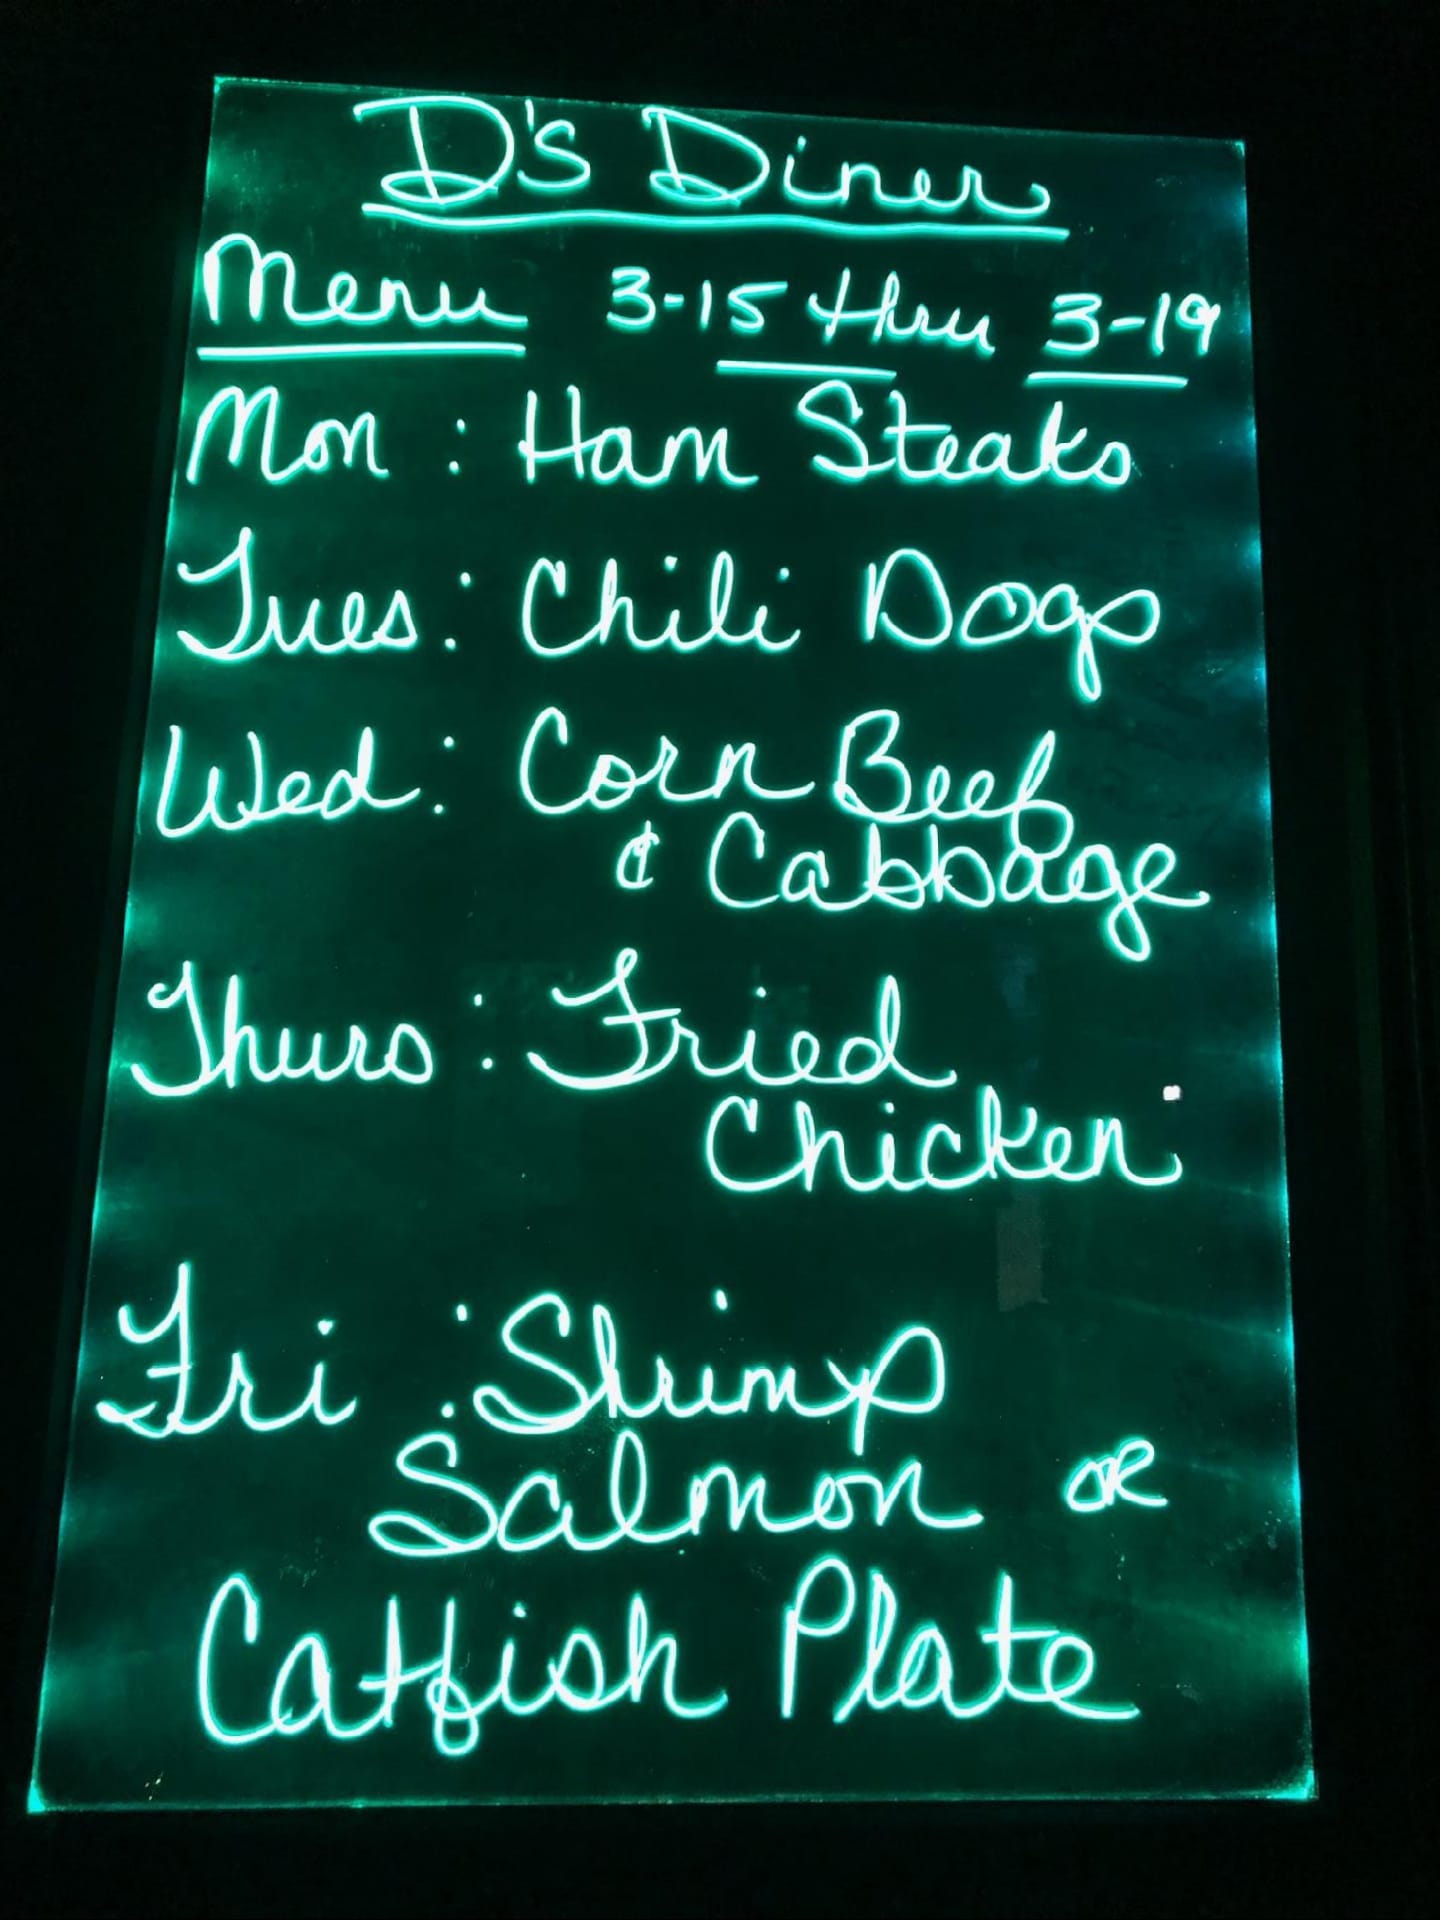 D's Diner
Menu 3-15 thru 3-19
Mon : Ham Steaks
Tues : Chili Dogs
Wed : Corn Beef
& Cabbage
Thurs : Fried
Chicken
Fri : Shrimp
Salmon OR
Catfish Plate